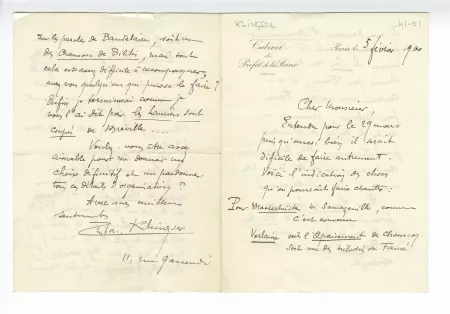 KLINGSOR
41-01
Cabinet
du
Préfet de la Seine
Paris le 5 février 1900
Cher Monsieur,
Entendu pour le 29 mars
puisqu'aussi bien il serait
difficile de faire autrement.
Voici l'indication des choses
qu'on pourrait faire chanter :
Pour Maeterlinck de Samazeuilh, comme
c'est convenu
Verlaine soit l'Apaisement de Chausson
soit une des mélodies de Fauré
sur les paroles de Baudelaire, soit une
des Chansons de Bilitis, mais tout
cela est assez difficile à accompagner,
avez-vous quelqu'un qui puisse le faire ?
Enfin je terminerai comme je
vous l'ai dit par les lauriers sont
coupés de Bréville....
Voulez-vous être assez
aimable pour me donner un
choix définitif et me pardonner
tous ces détails d'organisation ?
Avec mes meilleurs
sentiments
Klingsor
11, rue Gassendi